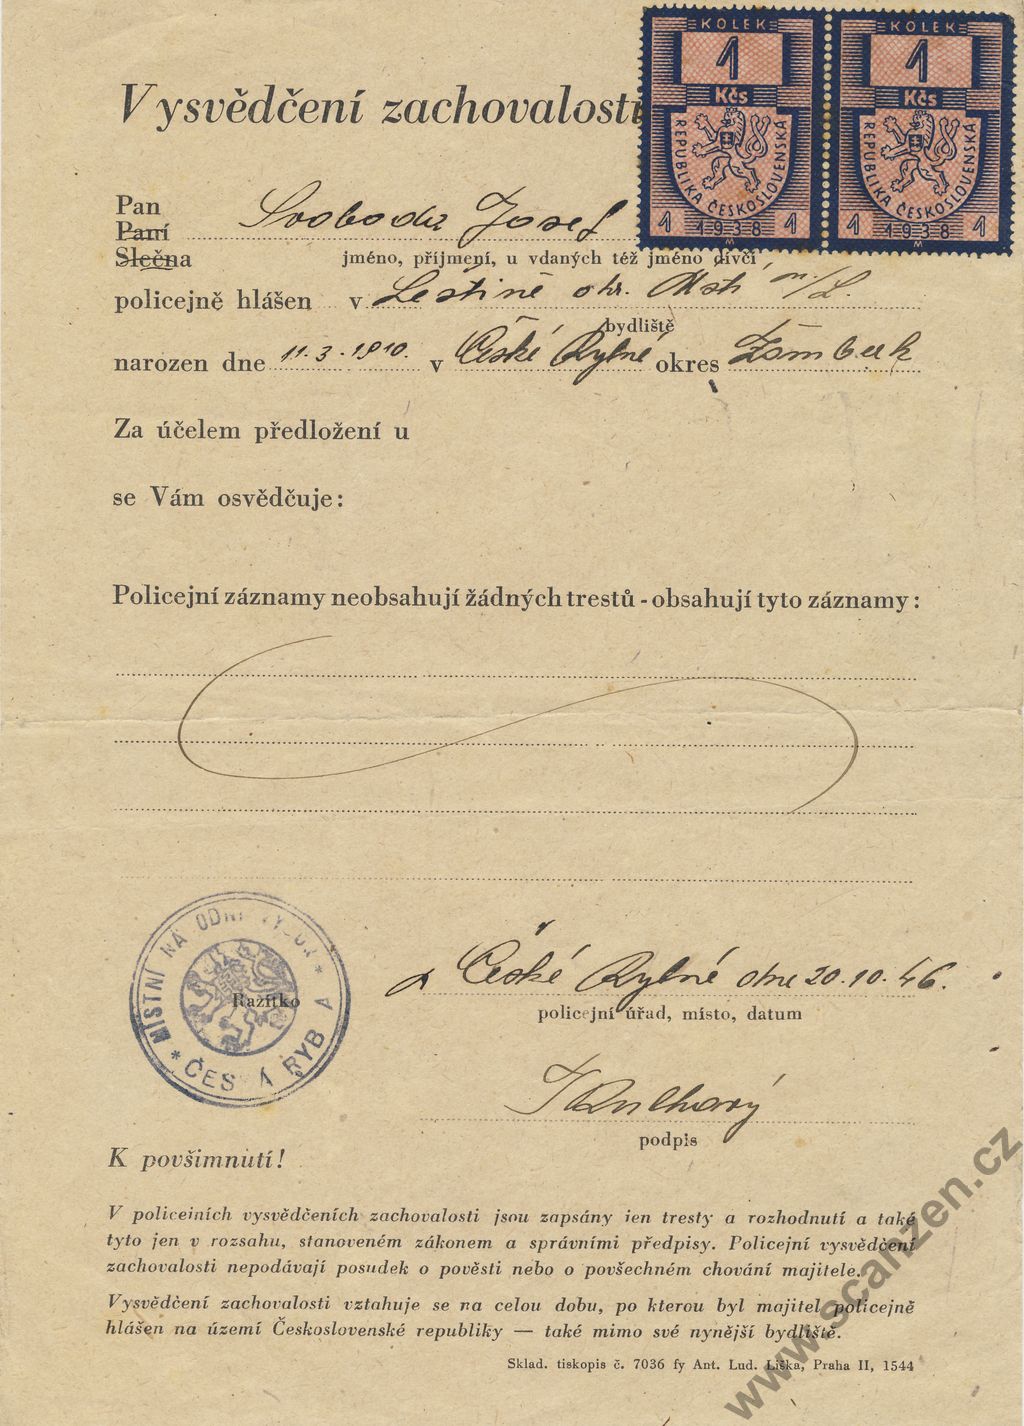 KOLEK
1
Kčs
REPUBLIKA ČESKOSLOVENSKÁ
1 1938 1
KOLEK
1
Kčs
REPUBLIKA ČESKOSLOVENSKÁ
1 1938 1
Vysvědčení zachovalosti
Pan
Paní Svoboda Josef
Slečna jméno, příjmení, u vdaných též jméno dívčí
policejně hlášen v Leštině okr. Ústí n./L.
bydliště
narozen dne 11.3.1910. v České Rybné okres Žamberk
Za účelem předložení u
se Vám osvědčuje:
Policejní záznamy neobsahují žádných trestů - obsahují tyto záznamy:
MÍSTNÍ NÁRODNÍ VÝBOR
Razítko
* ČESKÁ RYBNÁ *
v České Rybné dne 20.10.46.
policejní úřad, místo, datum
podpis
K povšimnutí!
V policejních vysvědčeních zachovalosti jsou zapsány jen tresty a rozhodnutí a také
tyto jen v rozsahu, stanoveném zákonem a správními předpisy. Policejní vysvědčení
zachovalosti nepodávají posudek o pověsti nebo o povšechném chování majitele.
Vysvědčení zachovalosti vztahuje se na celou dobu, po kterou byl majitel policejně
hlášen na území Československé republiky — také mimo své nynější bydliště.
Sklad. tiskopis č. 7036 fy Ant. Lud. Liška, Praha II, 1544
www.scanzen.cz